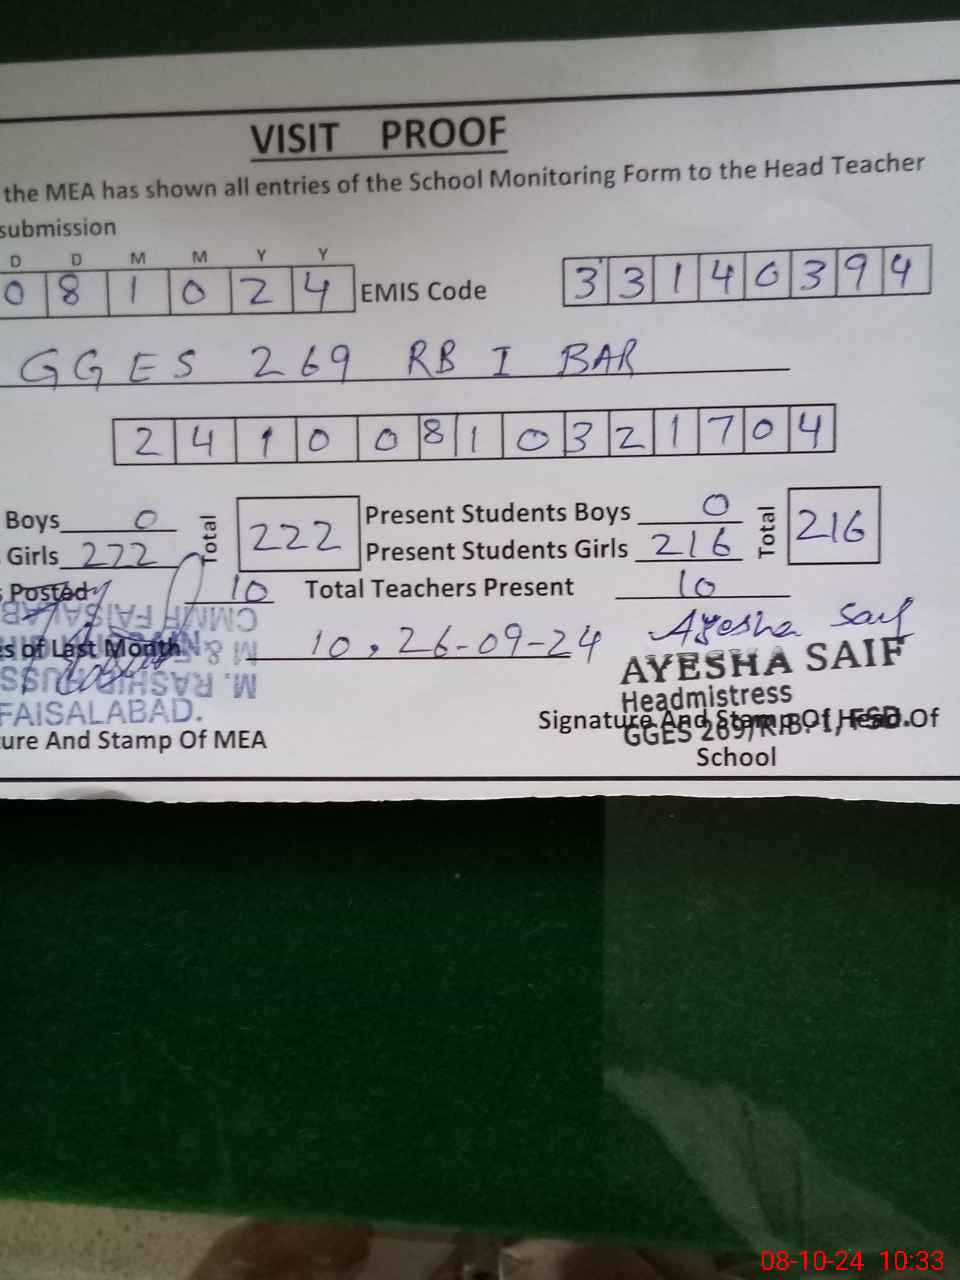 VISIT PROOF
the MEA has shown all entries of the School Monitoring Form to the Head Teacher
submission
D D M M Y Y
0 8 1 0 2 4 EMIS Code 3 3 1 4 0 3 9 4
GGES 269 RB I BAR
2 4 1 0 0 8 1 0 3 2 1 7 0 4
Boys 0 Total 222 Present Students Boys 0 Total 216
Girls 222 Present Students Girls 216
Posted 10 Total Teachers Present 10
CMMF FAISALAB
s of Last Month 10, 26-09-24 Ayesha Saif
AYESHA SAIF
M. RASHID
Headmistress
FAISALABAD.
GGES 269/R.B.-I, FSD.
Signature And Stamp Of Head Of
School
ure And Stamp Of MEA
08-10-24 10:33